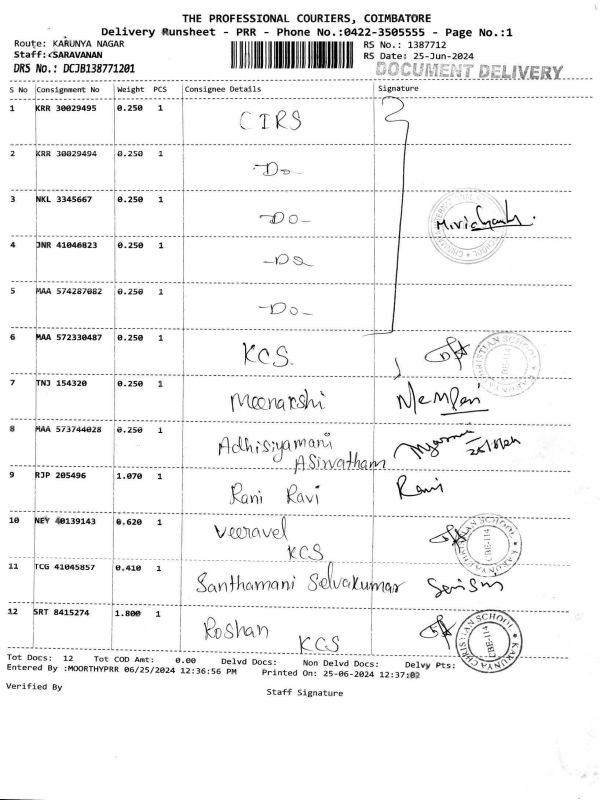 THE PROFESSIONAL COURIERS, COIMBATORE
Delivery Runsheet - PRR - Phone No.:0422-3505555 - Page No.:1
Route: KARUNYA NAGAR
RS No.: 1387712
Staff: SARAVANAN
RS Date: 25-Jun-2024
DRS No.: DCJB138771201
DOCUMENT DELIVERY
S No Consignment No Weight PCS Consignee Details Signature
1 KRR 30029495 0.250 1 CIRS
2 KRR 30029494 0.250 1 -Do-
3 NKL 3345667 0.250 1 -Do-
4 JNR 41046823 0.250 1 -Do-
5 MAA 574287082 0.250 1 -Do-
6 MAA 572330487 0.250 1 KCS.
KARUNYA CHRISTIAN SCHOOL
CBE-114
7 TNJ 154320 0.250 1 Meenakshi
8 MAA 573744028 0.250 1 Adhisiyamani
Asirvatham
9 RJP 205496 1.070 1 Rani Ravi Rani
10 NEY 40139143 0.620 1 Veeravel
KCS
KARUNYA CHRISTIAN SCHOOL
CBE-114
11 TCG 41045857 0.410 1 Santhamani Selvakumar
12 SRT 8415274 1.800 1 Roshan
KCS
KARUNYA CHRISTIAN SCHOOL
CBE-114
Tot Docs: 12 Tot COD Amt: 0.00 Delvd Docs: Non Delvd Docs: Delvy Pts:
Entered By :MOORTHYPRR 06/25/2024 12:36:56 PM Printed On: 25-06-2024 12:37:02
Verified By
Staff Signature